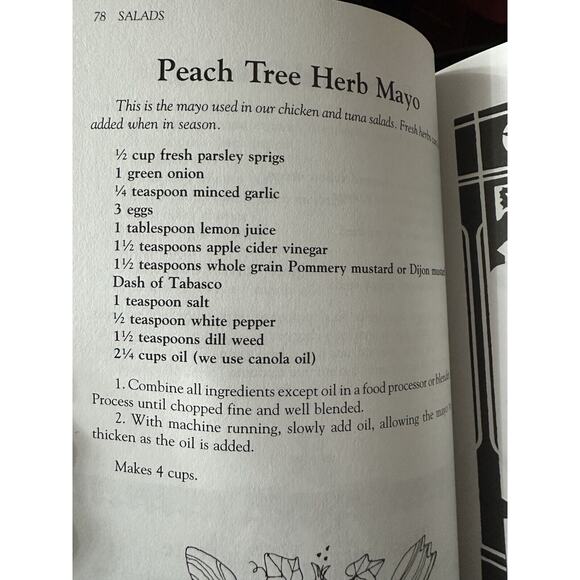 78 SALADS
Peach Tree Herb Mayo
This is the mayo used in our chicken and tuna salads. Fresh herbs can
added when in season.
½ cup fresh parsley sprigs
1 green onion
¼ teaspoon minced garlic
3 eggs
1 tablespoon lemon juice
1½ teaspoons apple cider vinegar
1½ teaspoons whole grain Pommery mustard or Dijon mustard
Dash of Tabasco
1 teaspoon salt
½ teaspoon white pepper
1½ teaspoons dill weed
2¼ cups oil (we use canola oil)
1. Combine all ingredients except oil in a food processor or blender.
Process until chopped fine and well blended.
2. With machine running, slowly add oil, allowing the mayo
thicken as the oil is added.
Makes 4 cups.